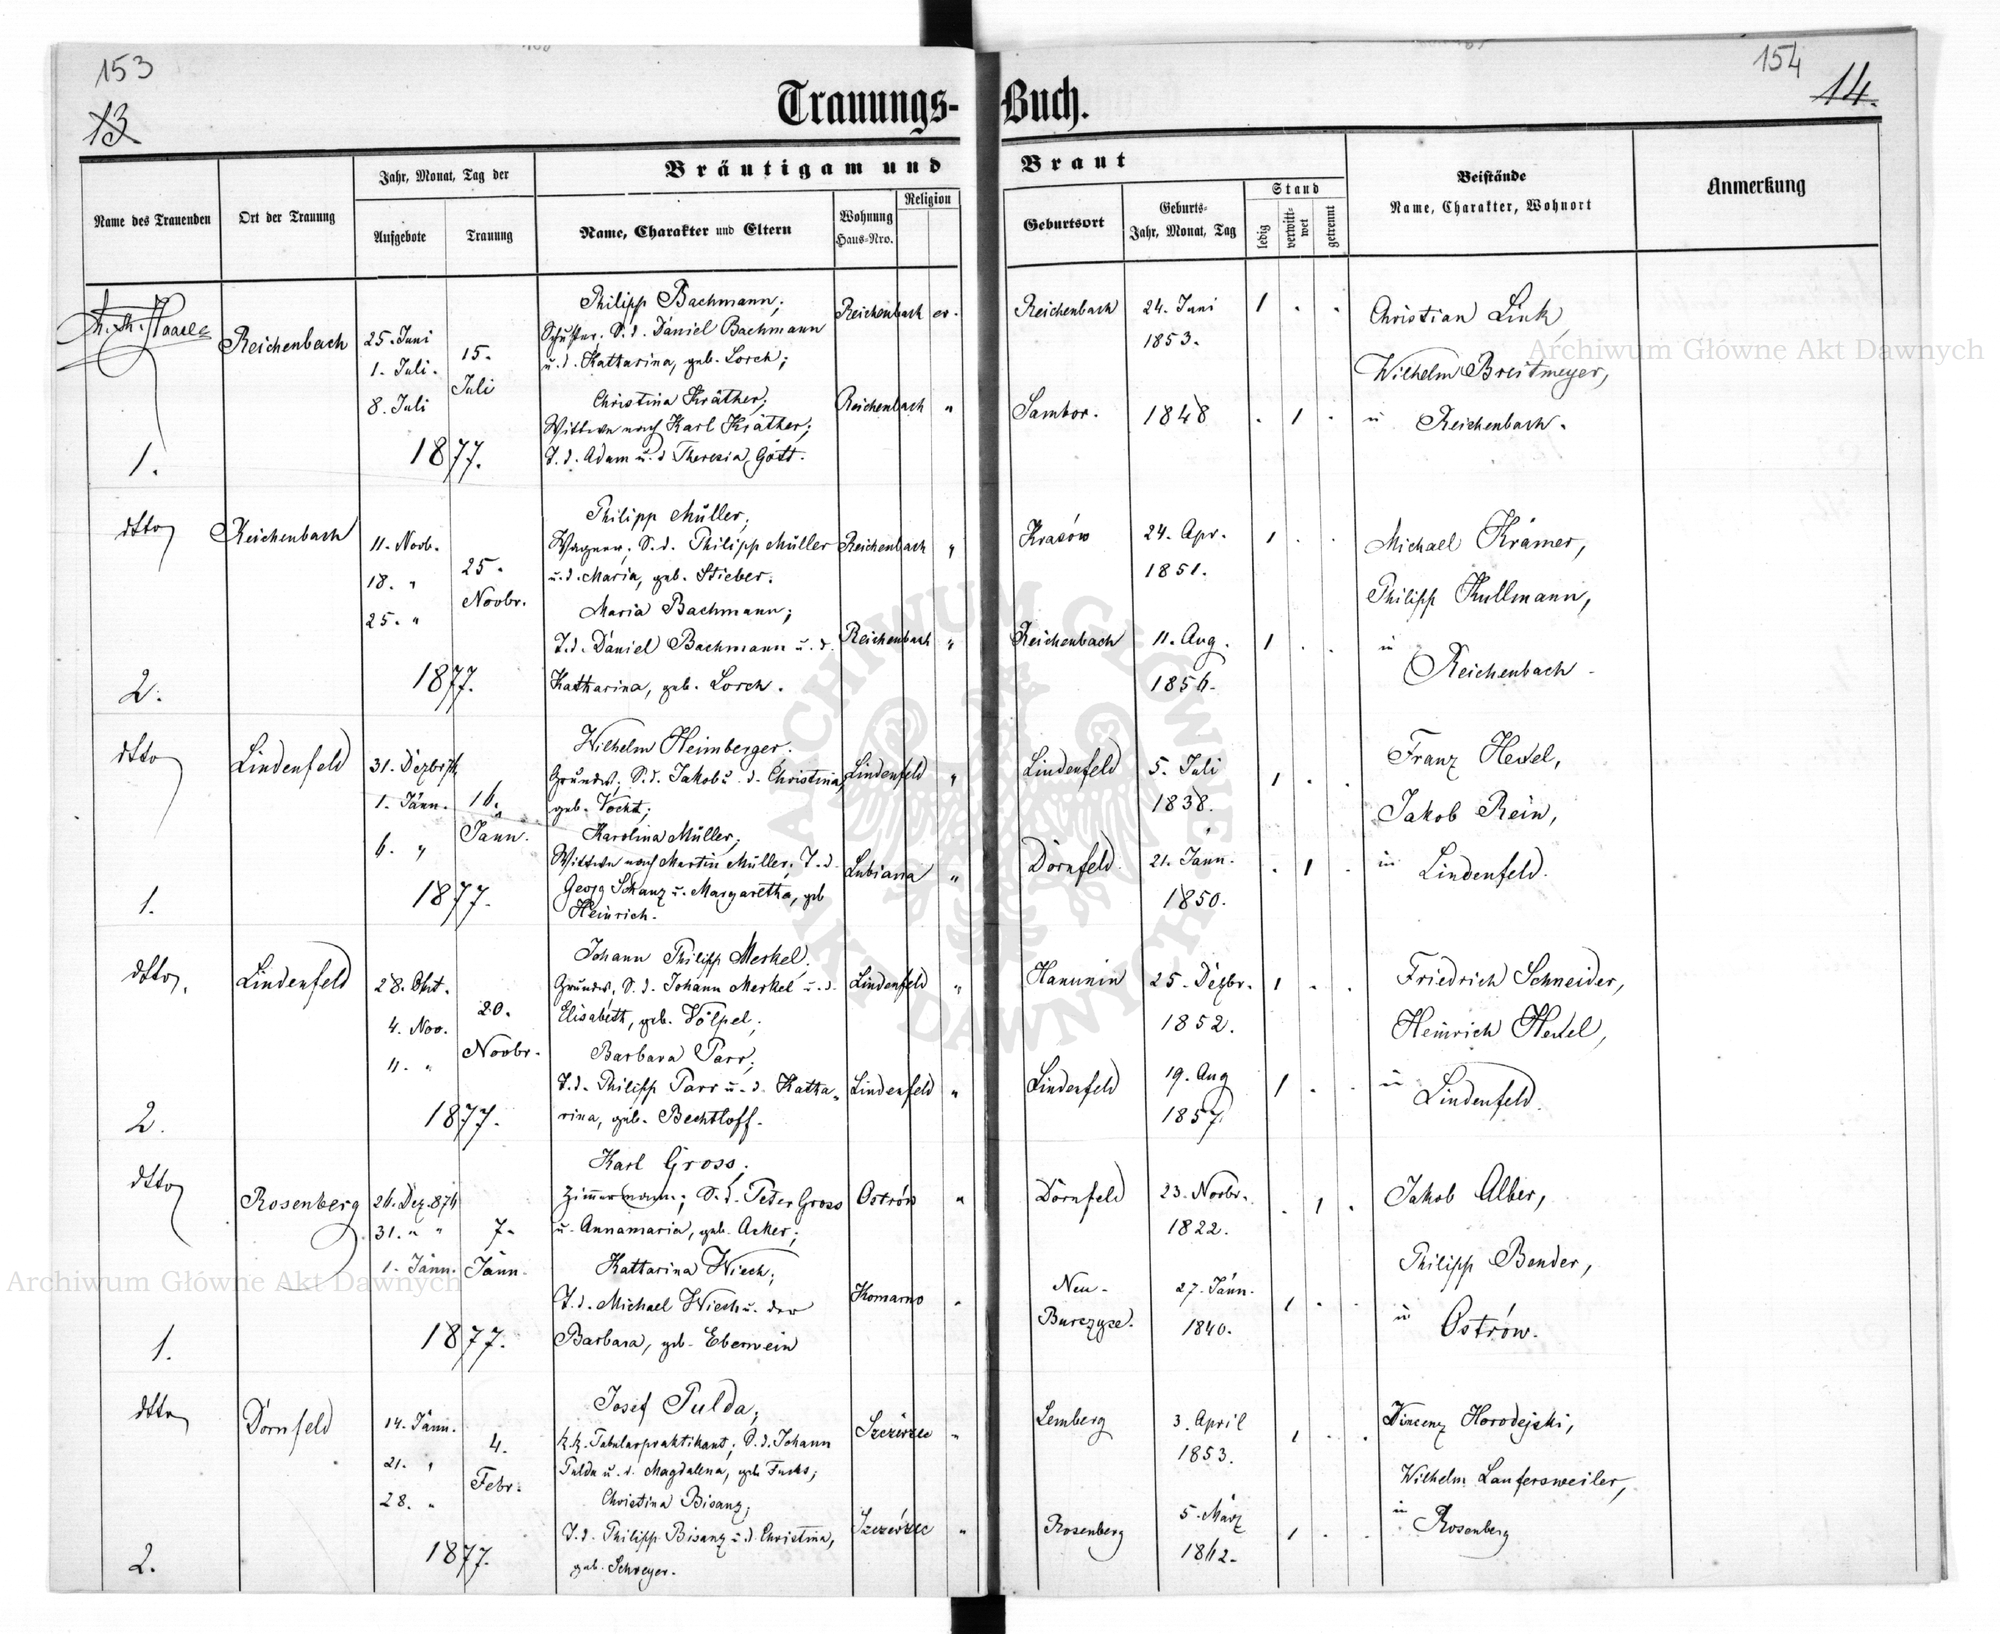 153
13
154
14.
Trauungs-Buch.
Bräutigam und Braut
Name des Trauenden
Ort der Trauung
Jahr, Monat, Tag der
Aufgebote
Trauung
Name, Charakter und Eltern
Wohnung
Haus-Nro.
Religion
Geburtsort
Geburts-
Jahr, Monat, Tag
Stand
ledig
verwitt-
wet
getrennt
Beistände
Name, Charakter, Wohnort
Anmerkung
Haase
1.
Reichenbach
25. Juni
1. Juli.
8. Juli
15.
Juli
1877.
Philipp Bachmann;
Schuster. S. d. Daniel Bachmann
u. d. Katharina, geb. Lorch;
Christina Kräther;
Wittwe nach Karl Kräther;
T. d. Adam u. d Theresia Gött.
Reichenbach
ev.
Reichenbach
"
Reichenbach
24. Juni
1853.
1 . .
Sambor.
1848
. 1 .
Christian Link,
Wilhelm Breitmeyer,
in Reichenbach.
dtto
2.
Reichenbach
11. Novb.
18. "
25. "
25.
Novbr.
1877.
Philipp Müller;
Wagner; S. d. Philipp Müller
u. d. Maria, geb. Stieber.
Maria Bachmann;
T. d. Daniel Bachmann u. d.
Katharina, geb. Lorch.
Reichenbach
"
Reichenbach
"
Krasów
24. Apr.
1851.
1 . .
Reichenbach
11. Aug.
1856.
1 . .
Michael Krämer,
Philipp Kullmann,
in
Reichenbach
dtto
1.
Lindenfeld
31. Dezbr 76.
1. Jänn.
6. "
16.
Jänn.
1877.
Wilhelm Heimberger.
Grundw. S. d. Jakob u. d. Christina,
geb. Vocht;
Karolina Müller;
Wittwe nach Martin Müller; T. d.
Georg Schanz u. Margaretha, geb
Heinrich.
Lindenfeld
"
Lubiana
"
Lindenfeld
5. Juli
1838.
1 . .
Dornfeld.
21. Jänn.
1850.
. 1 .
Franz Hexel,
Jakob Rein,
in Lindenfeld.
dtto.
2.
Lindenfeld
28. Okt.
4. Nov.
11. "
20.
Novbr.
1877.
Johann Philipp Merkel.
Grundw. S. d. Johann Merkel u. d.
Elisabeth, geb. Völpel;
Barbara Parr;
T. d. Philipp Parr u. d. Katha-
rina, geb. Bechtloff.
Lindenfeld
"
Lindenfeld
"
Hanunin
25. Dezbr.
1852.
1 . .
Lindenfeld
19. Aug
1857.
1 . .
Friedrich Schneider,
Heinrich Hexel,
in
Lindenfeld.
dtto
1.
Rosenberg
26. Dez. 876
31. " "
1. Jänn.
7.
Jänn.
1877.
Karl Gross;
Zimmermann; S. d. Peter Gross
u. Annamaria, geb. Acker;
Katharina Wiech;
T. d. Michael Wiech u. der
Barbara, geb. Eberwein
Ostrów
"
Komarno
"
Dornfeld
23. Novbr.
1822.
. 1 .
Neu-
Burczyce.
27. Jänn.
1840.
1 . .
Jakob Alber,
Philipp Bender,
in
Ostrów.
dtto
2.
Dornfeld
14. Jänn.
21. "
28. "
4.
Febr.
1877.
Josef Pulda;
k.k. Tabularpraktikant; S. d. Johann
Pulda u. d. Magdalena, geb Fuchs;
Christina Bisanz;
T. d. Philipp Bisanz u. d. Christina,
geb. Schreyer.
Szczérzec
"
Szczérzec
"
Lemberg
3. April
1853.
1 . .
Rosenberg
5. März
1862.
1 . .
Vincenz Horodejski,
Wilhelm Laufersweiler,
in
Rosenberg
Archiwum Główne Akt Dawnych
Archiwum Główne Akt Dawnych
ARCHIWUM GŁÓWNE AKT DAWNYCH